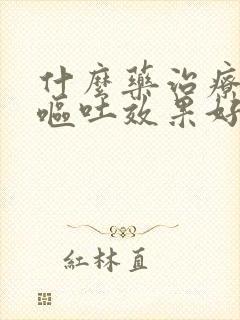 什麼藥治療
嘔吐效果好
紅林直